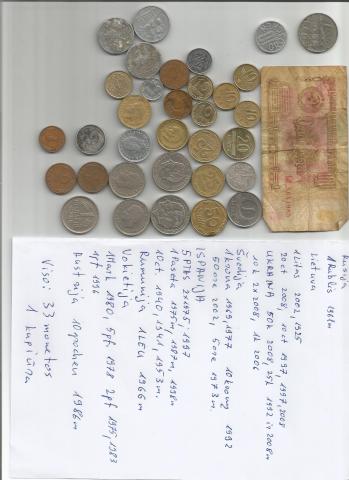 Rusija
1 Rublis 1961m
Lietuva
1 Litas 2002, 1925
20ct 2008, 10ct 1997, 1997, 2008
UKRAINA 50k 2008, 25k 1992 ir 2008m
10k 2x2008, 1k 2006
Švedija
1 krona 1969, 1977 10 kronų 1992
50 ore 2002, 5 ore 1973m.
ISPANIJA
5 PTAS 2x1975, 1997
1 Paseta 1975m, 1987m, 1998m
10ct. 1940, 1941, 1953m.
Rumunija 1 LEU 1966m
Vokietija
1 Mark 1980, 5pf 1978 2pf 1975, 1983
1pf 1996
Austrija 10 grochen 1986m
Viso: 33 monetos
1 kupiūra